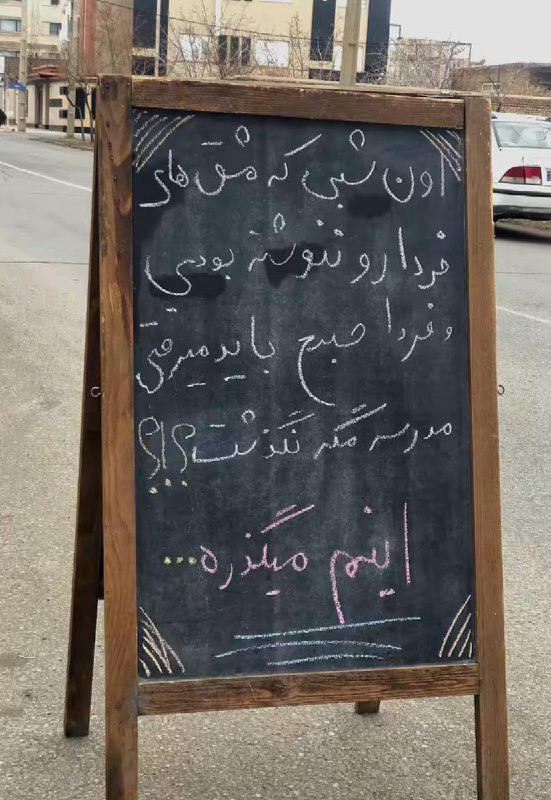 اون شبی که مشق های
فردا رو ننوشته بودی
و فردا صبح باید میرفتی
مدرسه مگه نگذشت؟!؟
اینم میگذره...